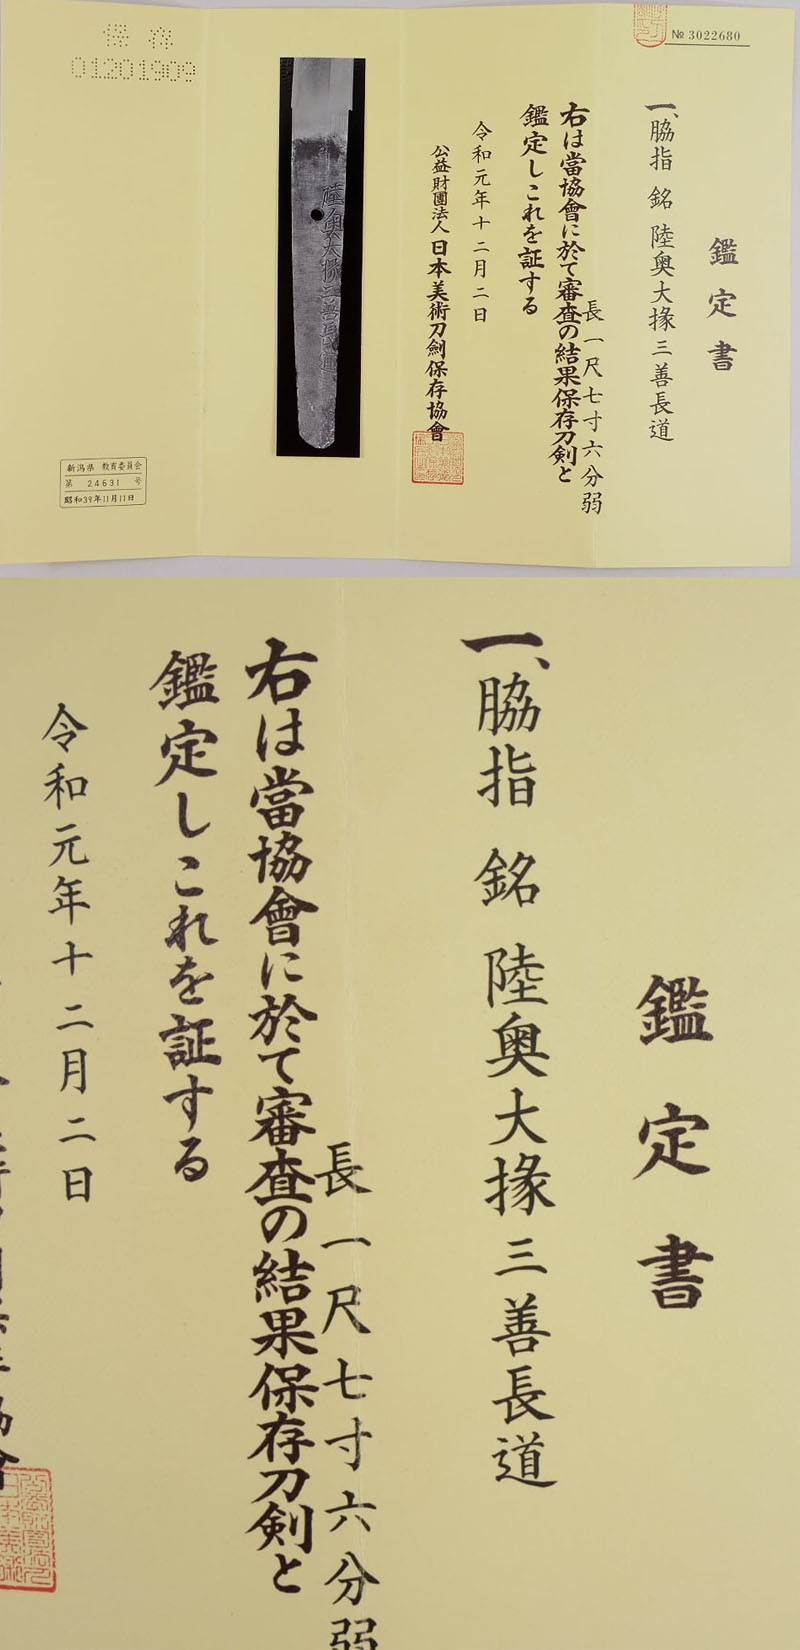 № 3022680
鑑定書
一、脇指 銘 陸奥大掾三善長道
長一尺七寸六分弱
右は當協會に於て審査の結果保存刀剣と
鑑定しこれを証する
令和元年十二月二日
公益財團法人 日本美術刀劍保存協會
陸奥大掾三善長道
保存
01201909
新潟県 教育委員会
第 24631 号
昭和39年11月11日
鑑定書
一、脇指 銘 陸奥大掾三善長道
長一尺七寸六分弱
右は當協會に於て審査の結果保存刀剣と
鑑定しこれを証する
令和元年十二月二日